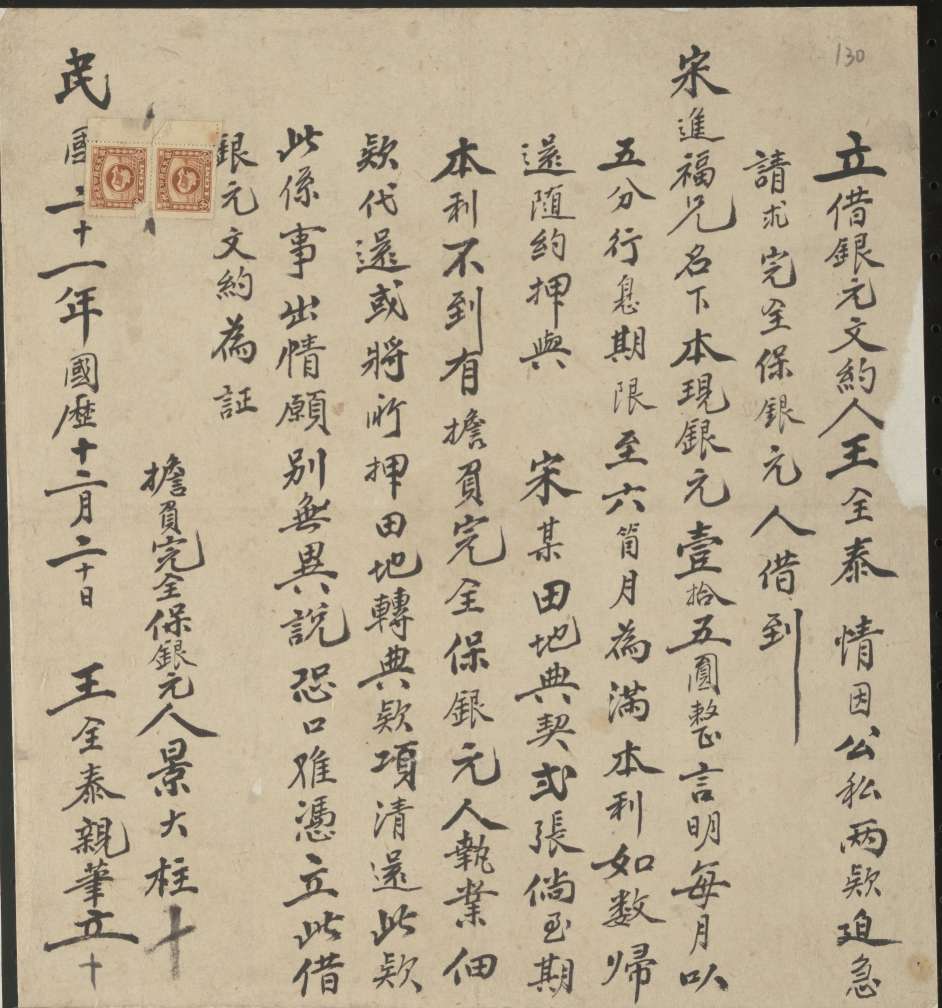 130
立借銀元文約人王全泰 情因公私兩欵迫急
請求完全保銀元人借到
宋進福兄名下本現銀元壹拾五圓整言明每月以
五分行息期限至六箇月為滿本利如数歸
還随約押與 宋某田地典契弍張倘至期
本利不到有擔負完全保銀元人執業佃
欵代還或將所押田地轉典欵項清還此欵
此係事出情願别無異說恐口难憑立此借
銀元文約為証
擔負完全保銀元人景大柱十
民國二十一年國歷十二月二十日 王全泰親筆立十